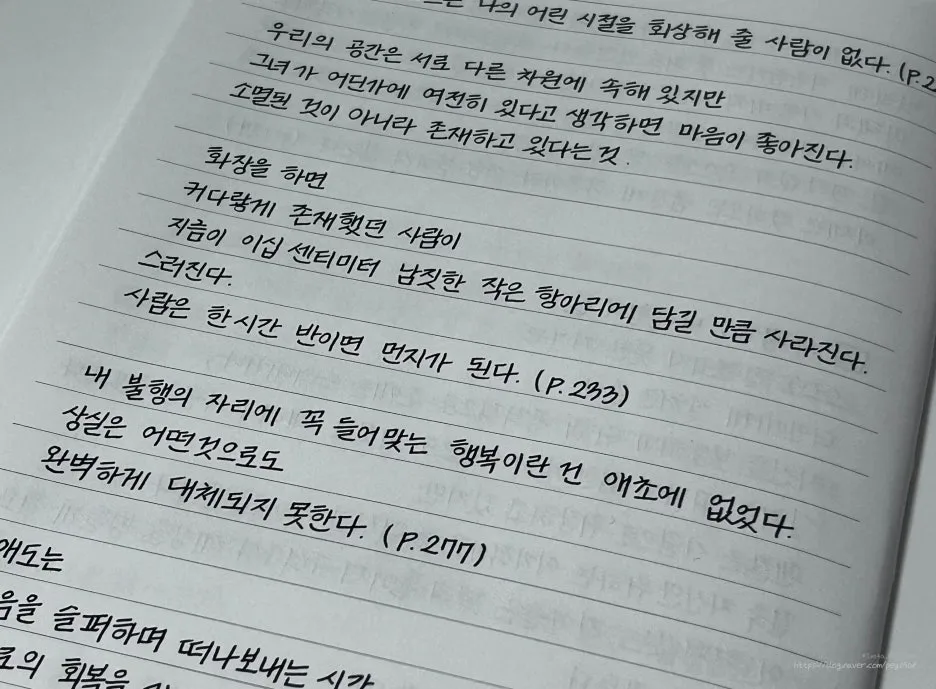 나의 어린 시절을 회상해 줄 사람이 없다. (P.2
우리의 공간은 서로 다른 차원에 속해 있지만
그녀가 어딘가에 여전히 있다고 생각하면 마음이 좋아진다.
소멸된 것이 아니라 존재하고 있다는 것.
화장을 하면
커다랗게 존재했던 사람이
지름이 이십 센티미터 남짓한 작은 항아리에 담길 만큼 사라진다.
스러진다.
사람은 한 시간 반이면 먼지가 된다. (P.233)
내 불행의 자리에 꼭 들어맞는 행복이란 건 애초에 없었다.
상실은 어떤 것으로도
완벽하게 대체되지 못한다. (P.277)
애도는
음을 슬퍼하며 떠나보내는 시간
로의 회복을